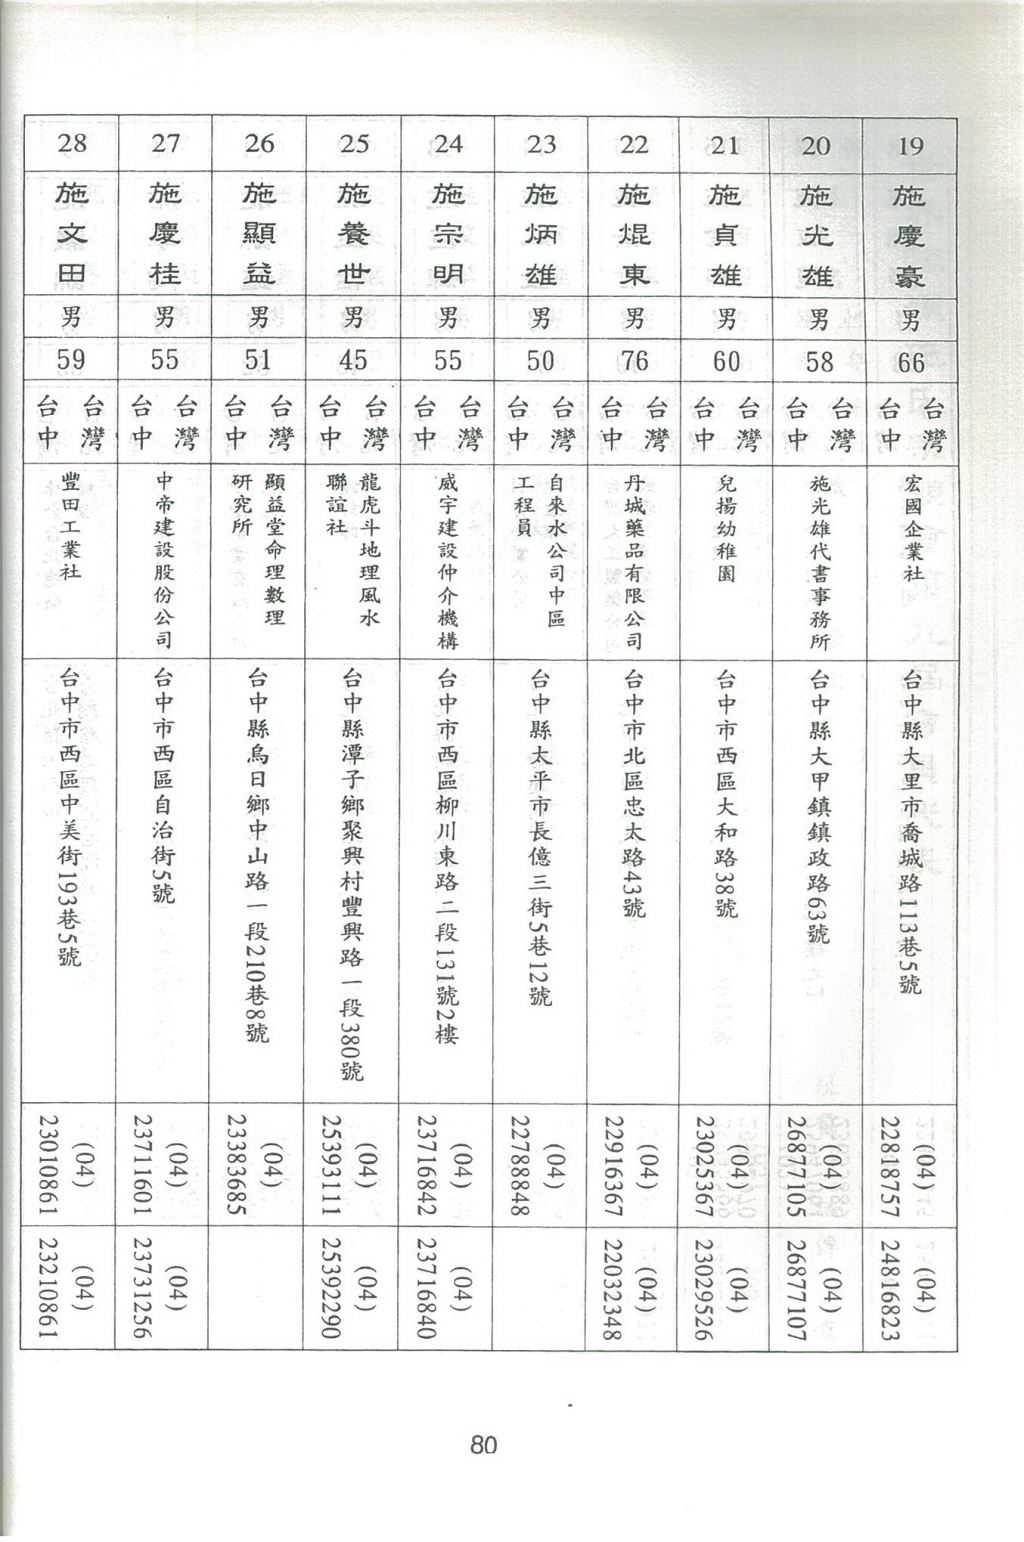 19
施慶豪
男
66
台灣
台中
宏國企業社
台中縣大里市喬城路113巷5號
(04)
22818757
(04)
24816823
20
施光雄
男
58
台灣
台中
施光雄代書事務所
台中縣大甲鎮鎮政路63號
(04)
26877105
(04)
26877107
21
施貞雄
男
60
台灣
台中
兒揚幼稚園
台中市西區大和路38號
(04)
23025367
(04)
23029526
22
施焜東
男
76
台灣
台中
丹城藥品有限公司
台中市北區忠太路43號
(04)
22916367
(04)
22032348
23
施炳雄
男
50
台灣
台中
自來水公司中區
工程員
台中縣太平市長億三街5巷12號
(04)
22788848
24
施宗明
男
55
台灣
台中
威宇建設仲介機構
台中市西區柳川東路二段131號2樓
(04)
23716842
(04)
23716840
25
施養世
男
45
台灣
台中
龍虎斗地理風水
聯誼社
台中縣潭子鄉聚興村豐興路一段380號
(04)
25393111
(04)
25392290
26
施顯益
男
51
台灣
台中
顯益堂命理數理
研究所
台中縣烏日鄉中山路一段210巷8號
(04)
23383685
27
施慶桂
男
55
台灣
台中
中帝建設股份公司
台中市西區自治街5號
(04)
23711601
(04)
23731256
28
施文田
男
59
台灣
台中
豐田工業社
台中市西區中美街193巷5號
(04)
23010861
(04)
23210861
80